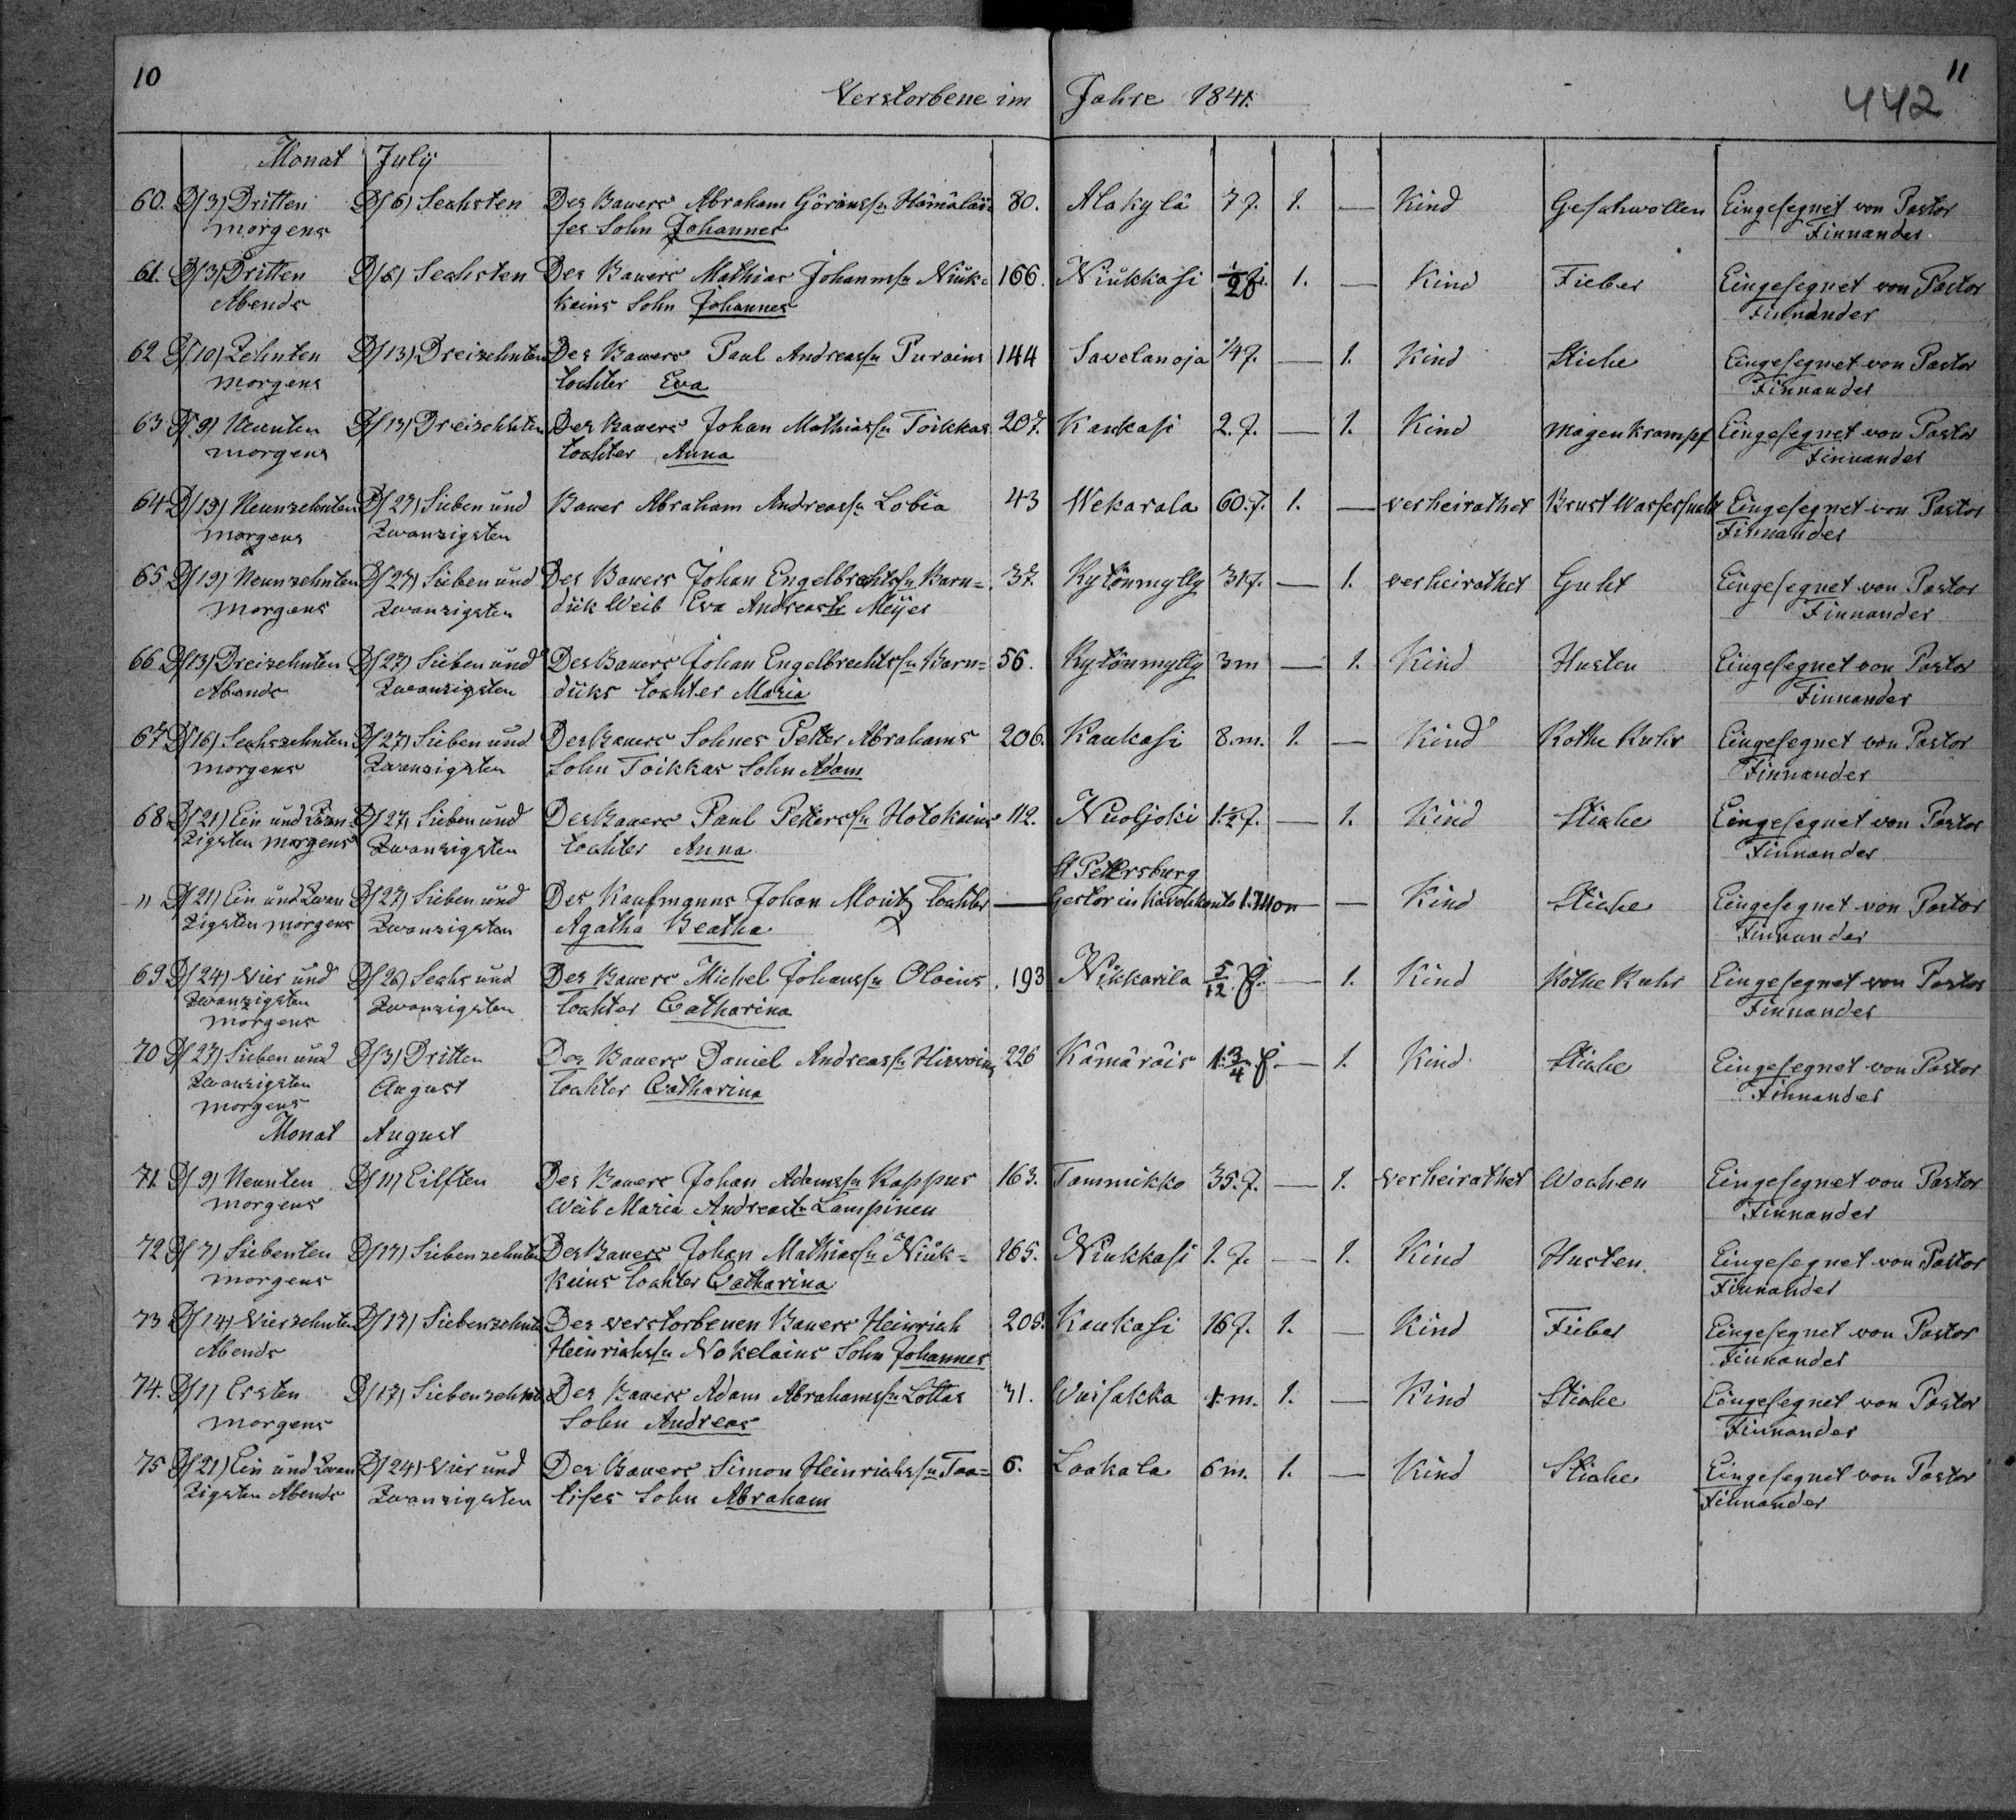 10
11
442
Verstorbene im Jahre 1841.
Monat July
60. D/3) Dritten D/6) Sechsten Des Bauers Abraham Göransn Hämäläi- 80. Alakylä 7 J. 1. — Kind Geschwollen Eingesegnet von Pastor
morgens ses Sohn Johannes Finnander.
61. D/3) Dritten D/6) Sechsten Des Bauers Mathias Johannsn Niuk- 166. Niukkasi 1/2 J. 1. — Kind Fieber Eingesegnet von Pastor
Abends kains Sohn Johannes Finnander
62 D/10) Zehnten D/13) Dreizehnten Des Bauers Paul Andreassn Purains 144 Savolanoja 1/4 J. — 1. Kind Stiche Eingesegnet von Pastor
morgens tochter Eva Finnander
63 D/9) Neunten D/13) Dreizehnten Des Bauers Johan Mathiassn Toikkas 207. Kaukasi 2. J. — 1. Kind magen Krampf Eingesegnet von Pastor
morgens tochter Anna Finnander
64 D/19) Neunzehnten D/27) Sieben und Bauer Abraham Andreassn Lobia 43 Wekarala 60. J. 1. — verheirathet Brust Eingesegnet von Pastor
morgens Zwanzigsten Finnander
65 D/19) Neunzehnten D/27) Sieben und Des Bauers Johan Engelbrechtssn Barn= 37. Kytönmylly 31 J. — 1. verheirathet Eingesegnet von Pastor
morgens Zwanzigsten dük Weib Eva Andreastr Meijer Finnander
66 D/13) Dreizehnten D/27) Sieben und Des Bauers Johan Engelbrechtssn Barn= 56. Kytönmylly 3 m — 1. Kind Husten Eingesegnet von Pastor
Abends Zwanzigsten düks tochter Maria Finnander
67 D/16) Sechszehnten D/27) Sieben und Des Bauers Sohnes Petter Abrahams 206. Kaukasi 8. m. 1. — Kind Rothe Ruhr Eingesegnet von Pastor
morgens Zwanzigsten Sohn Toikkas Sohn Adam Finnander
68 D/21) Ein und Zwan- D/27) Sieben und Des Bauers Paul Petterssn Hotokains 112. Nuoljoki 1 1/2 J. — 1. Kind Stiche Eingesegnet von Pastor
Zigsten morgens Zwanzigsten tochter Anna Finnander
St Petersburg
" D/21) Ein und Zwan D/27) Sieben und Des Kaufmanns Johan Moritz Tochter — Gestor in 1. Mon — — Kind Stiche Eingesegnet von Pastor
Zigsten morgens Zwanzigsten Agatha Beatha Finnander
69 D/24) Vier und D/26) Sechs und Des Bauers Michel Johanssn Olains 193 Nikkarila 5/12 J. — 1. Kind Rothe Ruhr Eingesegnet von Pastor
Zwanzigsten Zwanzigsten tochter Catharina Finnander
morgens
70 D/27) Sieben und D/3) Dritten Des Bauers Daniel Andreassn Hirwoins 226 Kämäräis 1 3/4 J — 1. Kind Stiche Eingesegnet von Pastor
Zwanzigsten August tochter Catharina Finnander
morgens
Monat August
71. D/9) Neunten D/11) Eilften Des Bauers Johan Adamssn Kappus 163. Tammikko 35. J. — 1. verheirathet Wochen Eingesegnet von Pastor
morgens Weib Maria Andreastr Lampinen Finnander
72 D/7) Siebenten D/17) Siebenzehnten Des Bauers Johan Mathiassn Niuk= 165. Niukkasi 1. J. — 1. Kind Husten Eingesegnet von Pastor
morgens kains tochter Catharina Finnander
73 D/14) Vierzehnten D/17) Siebenzehnten Des verstorbenen Bauers Heinrich 205. Kaukasi 16 J. 1. — Kind Fieber Eingesegnet von Pastor
Abends Heinrichssn Nokelains Sohn Johannes Finnander
74. D/1) Ersten D/17) Siebenzehnten Des Bauers Adam Abrahamssn Lottas 31. Wuisakka 1. m. 1. — Kind Stiche Eingesegnet von Pastor
morgens Sohn Andreas Finnander
75 D/21) Ein und Zwan D/24) Vier und Des Bauers Simon Heinrichssn Taa= 6. Laakala 6 m. 1. — Kind Stiche Eingesegnet von Pastor
Zigsten Abends Zwanzigsten tises Sohn Abraham Finnander